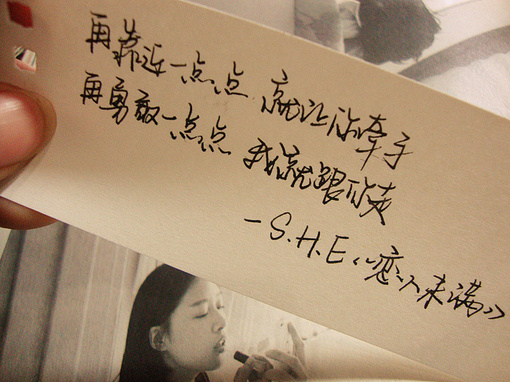 再靠近一点点 就让你牵手
再勇敢一点点 我就跟你走
-S.H.E《恋人未满》